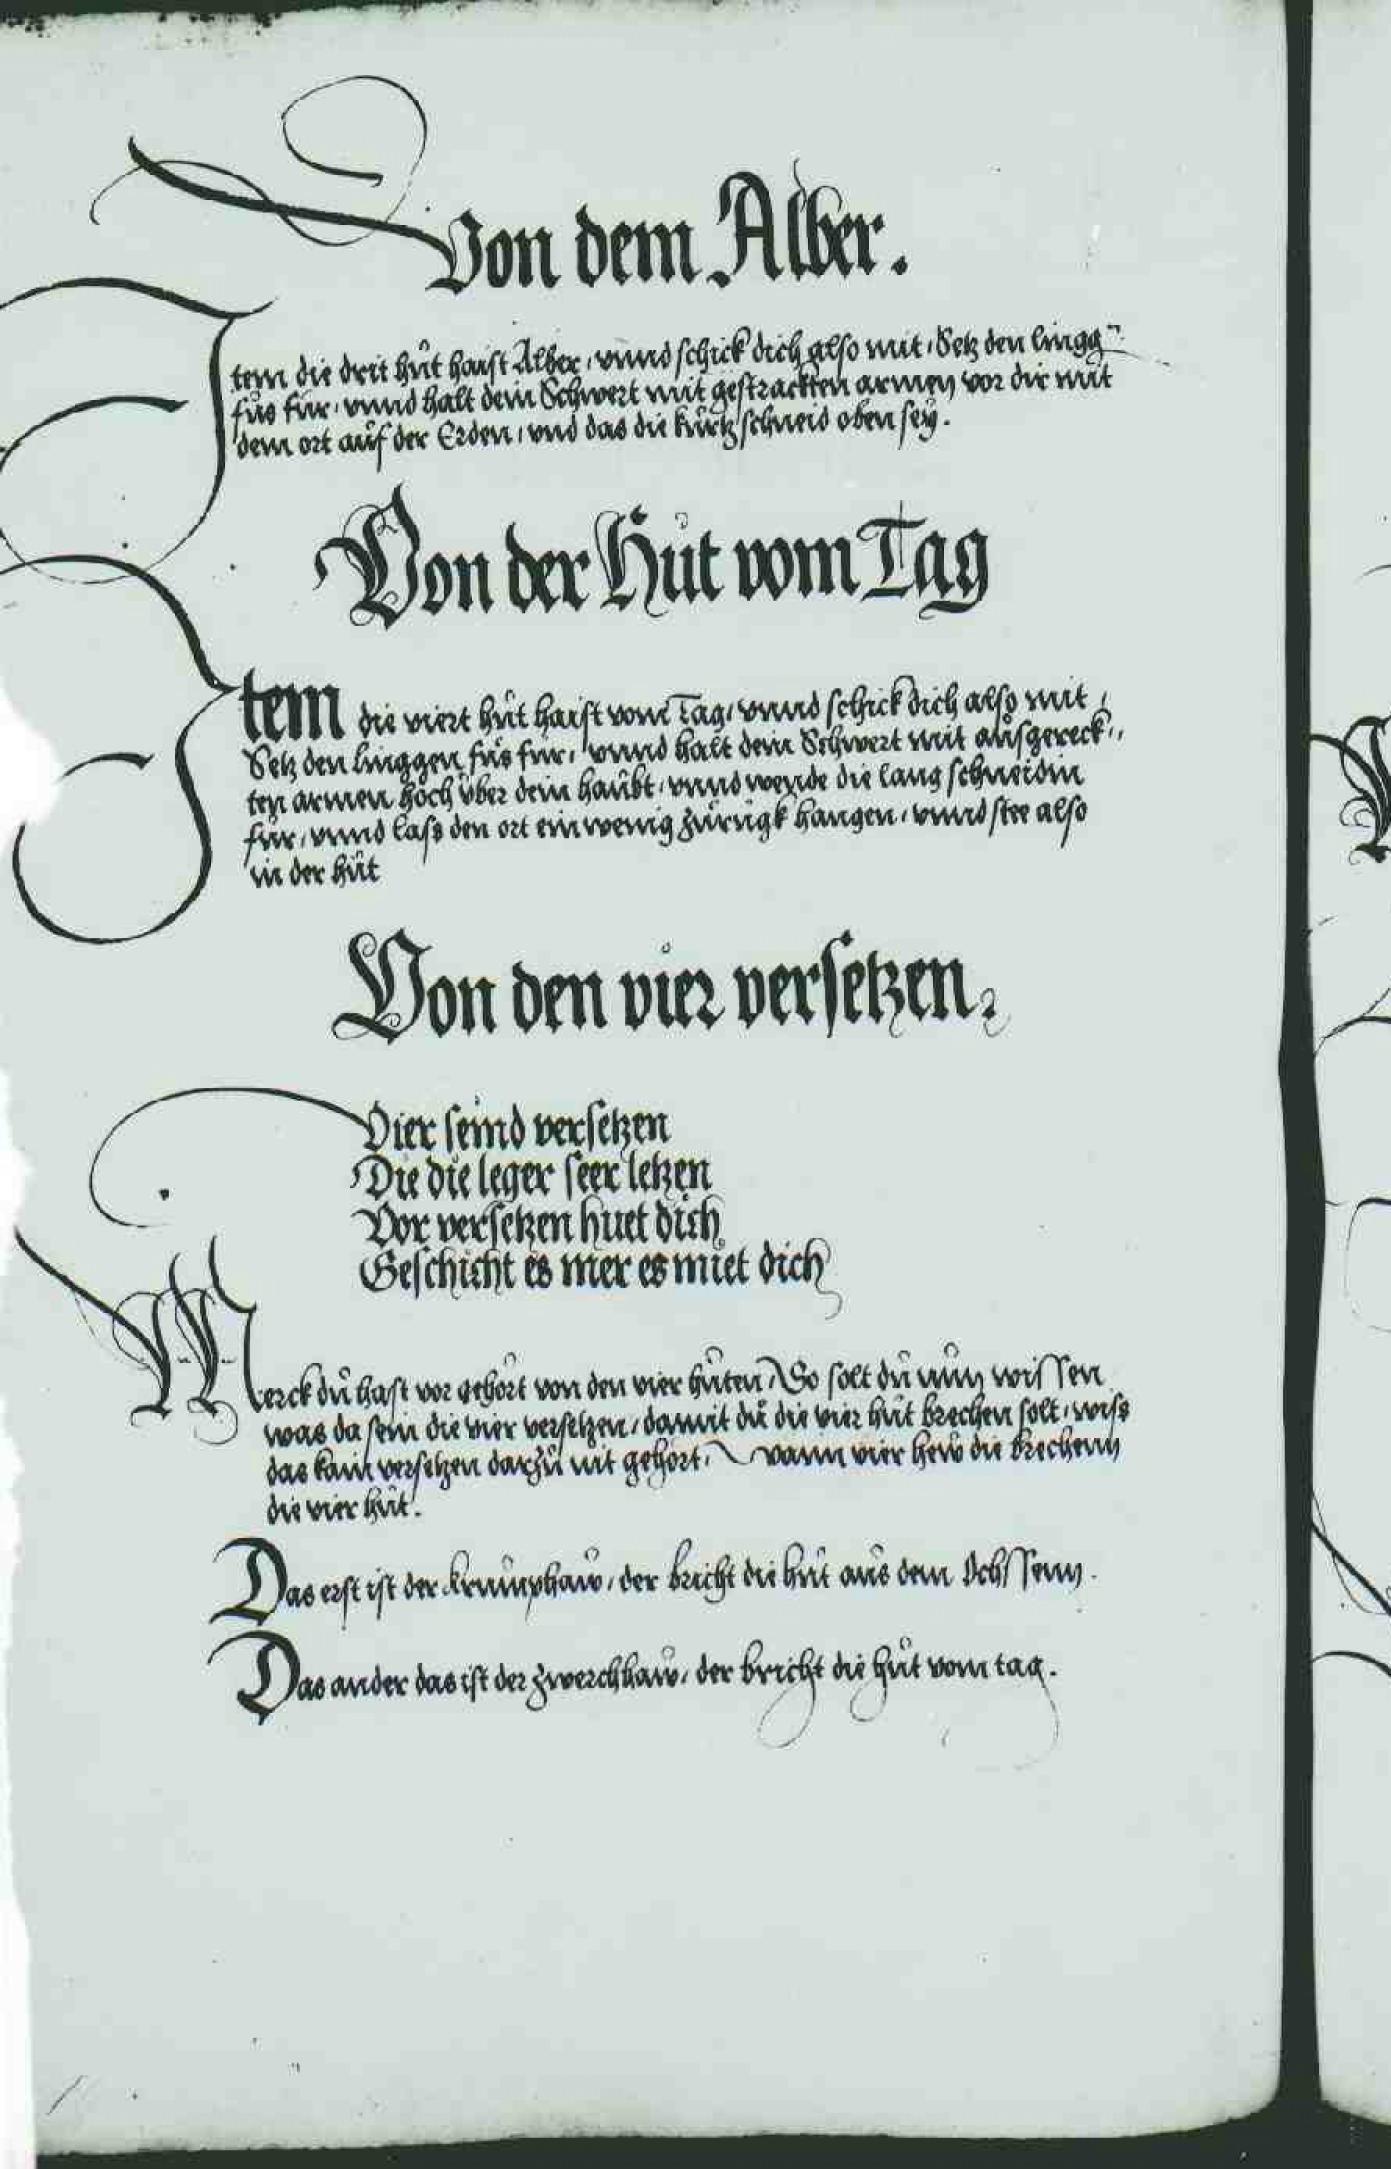 Von dem Alber.
Item die drit hůt haist Alber, vnnd schick dich also mit, Setz den lingg
fůs fur, vnnd halt dein Schwert mit gestrackten armen vor dir mit
dem ort auf der Erden, vnd das die kurtz schneid oben sey.
Von der Hůt vom Tag
Item die viert hůt haist vom Tag, vnnd schick dich also mit,
Setz den linggen fůs fur, vnnd halt dein Schwert mit aůsgereck,,
ten armen hoch ůber dein haůbt, vnnd wende die lang schneidin
fur, vnnd lass den ort ein wenig zůrugk hangen, vnnd stee also
in der hůt
Von den vier versetzen.
Vier seind versetzen
Die die leger seer letzen
Vor versetzen huet dich
Geschicht es mer es můet dich
Merck dů hast vor gehört von den vier hůten, So solt dů nůn wissen
was da sein die vier versetzen, damit dů die vier hůt brechen solt, wiss
das kain versetzen darzů nit gehört, wann vier hew die brechenn
die vier hůt.
Das erst ist der krumphaw, der bricht die hůt aůs dem Ochssenn.
Das ander das ist der zwerchhaw, der bricht die hůt vom tag.